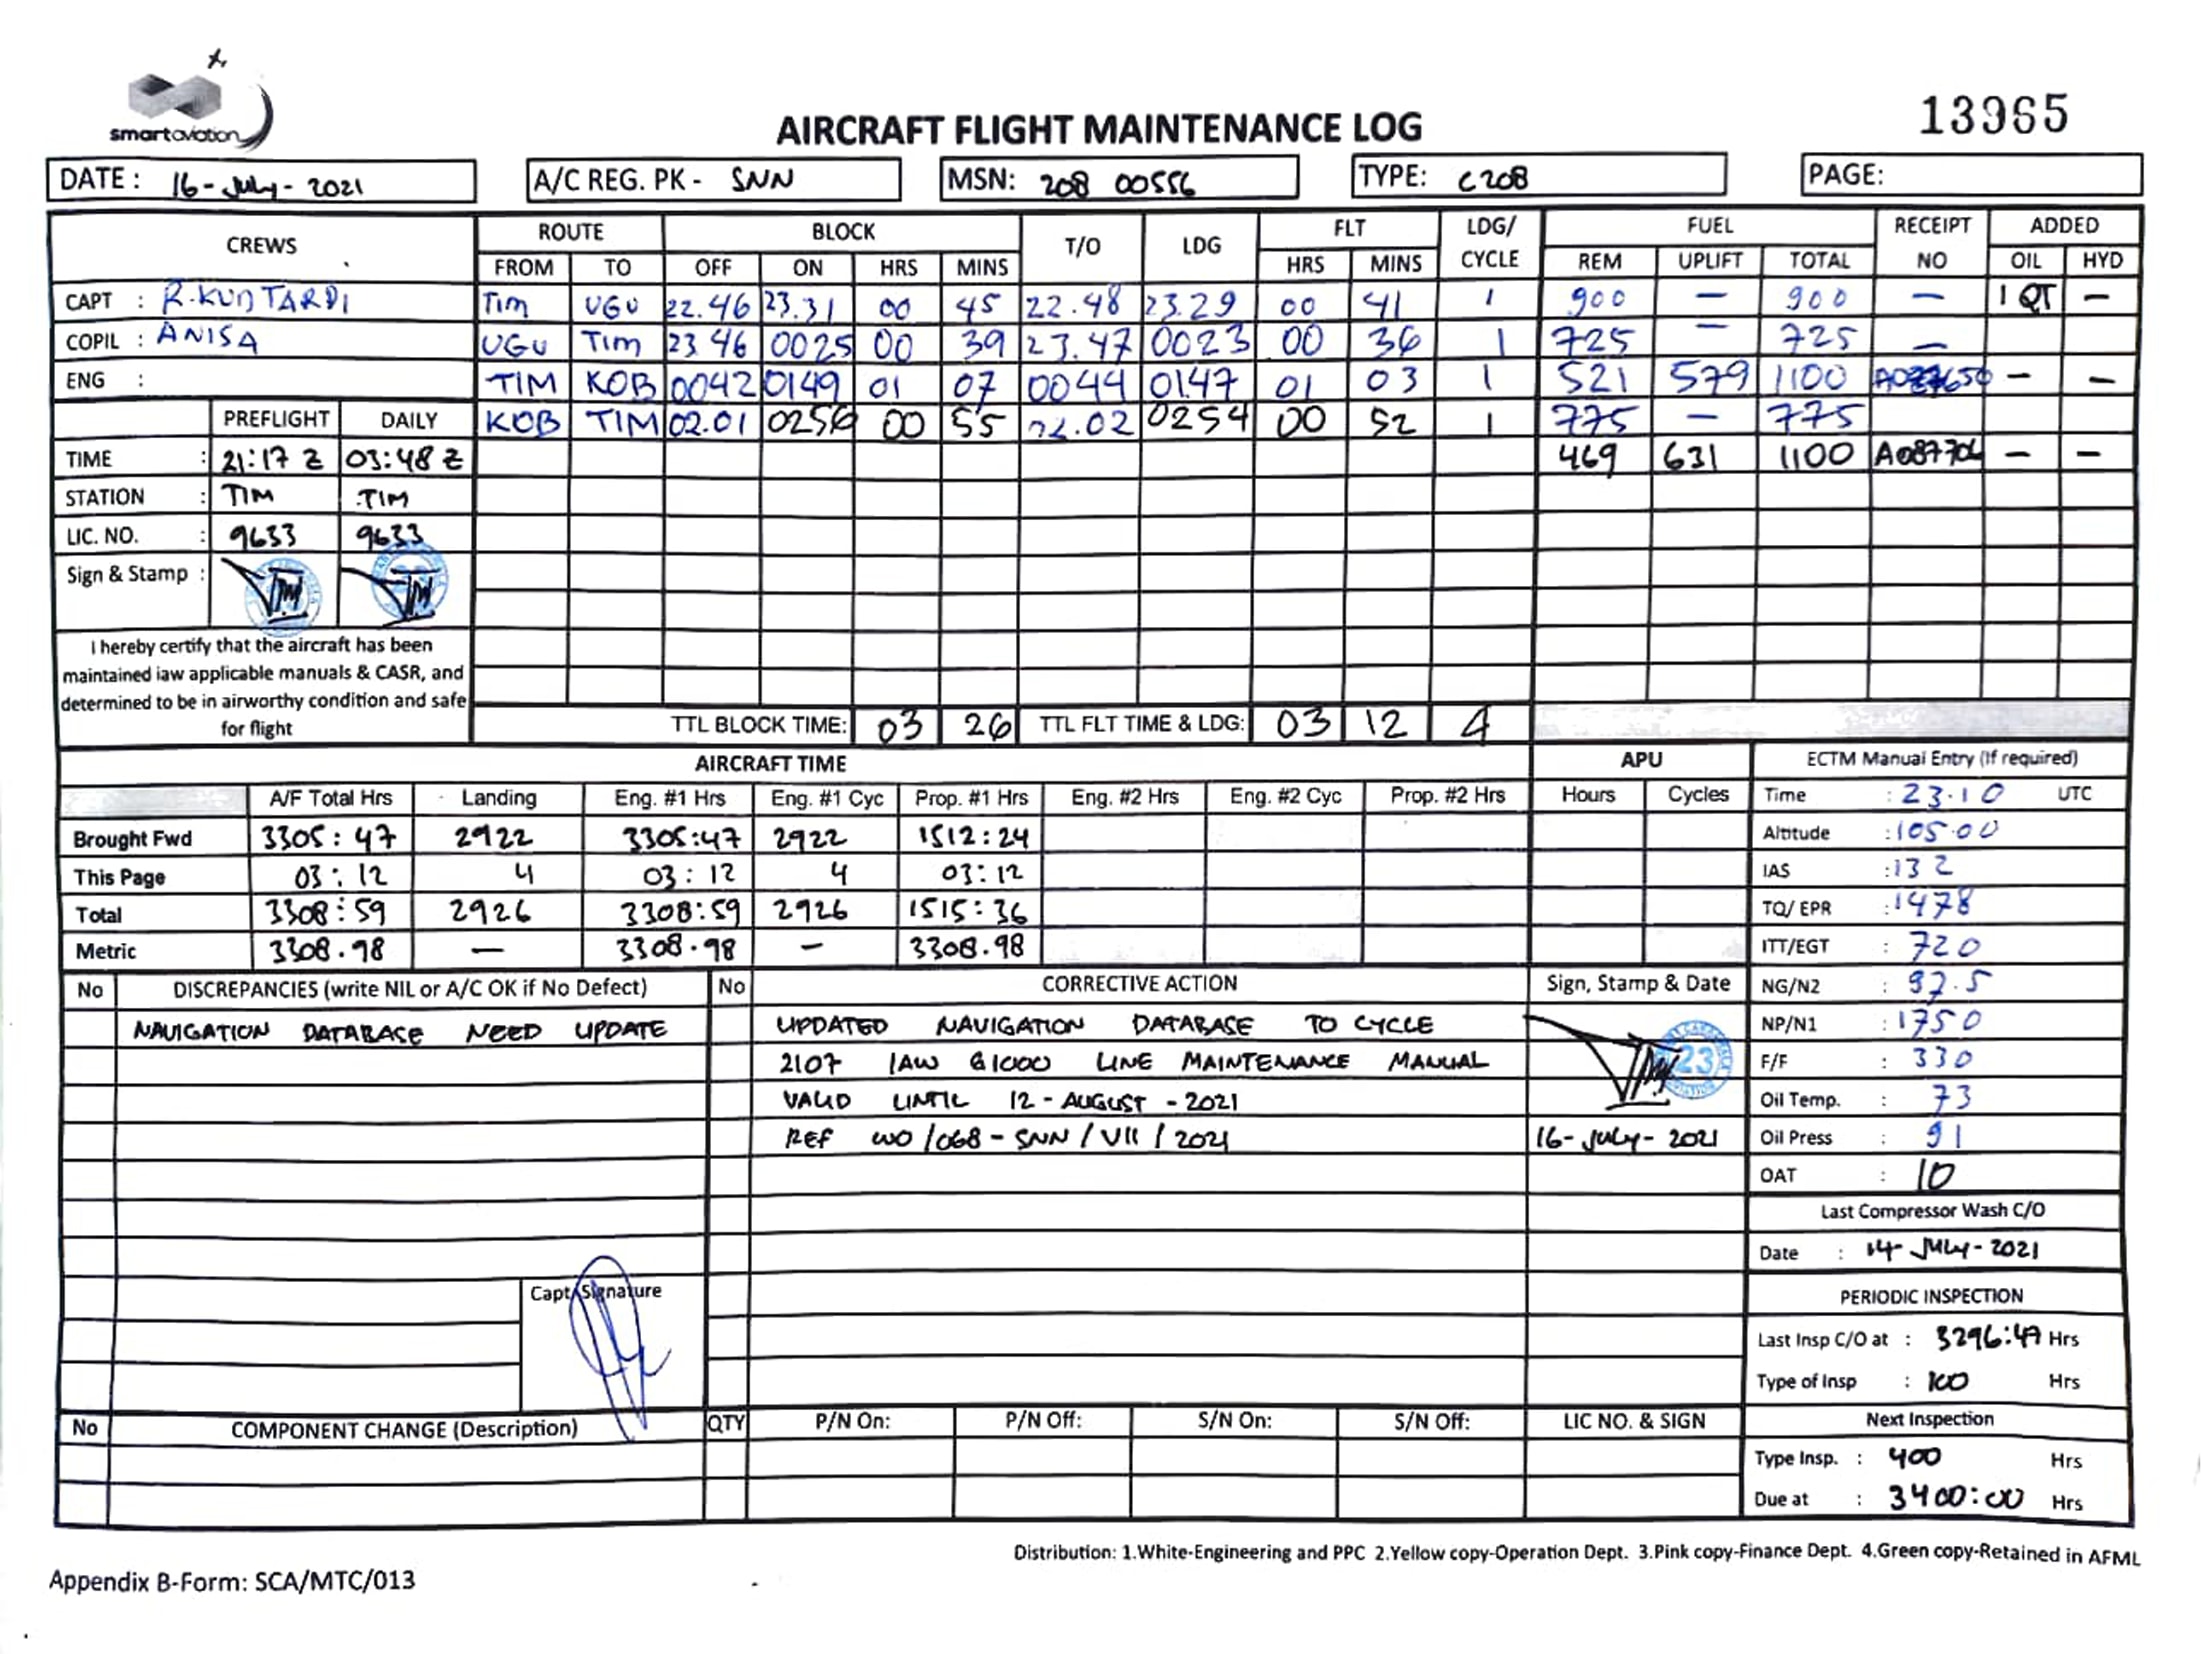 smartaviation
AIRCRAFT FLIGHT MAINTENANCE LOG
13965
DATE : 16-July-2021
A/C REG. PK - SNN
MSN: 208 00556
TYPE: C208
PAGE:
CREWS ROUTE BLOCK T/O LDG FLT LDG/ CYCLE FUEL RECEIPT NO ADDED
FROM TO OFF ON HRS MINS HRS MINS REM UPLIFT TOTAL OIL HYD
CAPT : R.KUNTARDI Tim UGU 22.46 23.31 00 45 22.48 23.29 00 41 1 900 — 900 — 1 QT —
COPIL : ANISA UGU Tim 23.46 0025 00 39 23.47 0023 00 36 1 725 — 725 —
ENG : TIM KOB 0042 0149 01 07 0044 0147 01 03 1 521 579 1100 — —
PREFLIGHT DAILY KOB TIM 02.01 0256 00 55 02.02 0254 00 52 1 775 — 775
TIME : 21:17 Z 03:48 Z 469 631 1100 A087706 — —
STATION : TIM TIM
LIC. NO. : 9633 9633
Sign & Stamp :
I hereby certify that the aircraft has been
maintained iaw applicable manuals & CASR, and
determined to be in airworthy condition and safe
for flight
TTL BLOCK TIME: 03 26 TTL FLT TIME & LDG: 03 12 4
AIRCRAFT TIME APU
A/F Total Hrs Landing Eng. #1 Hrs Eng. #1 Cyc Prop. #1 Hrs Eng. #2 Hrs Eng. #2 Cyc Prop. #2 Hrs Hours Cycles
Brought Fwd 3305:47 2922 3305:47 2922 1512:24
This Page 03:12 4 03:12 4 03:12
Total 3308:59 2926 3308:59 2926 1515:36
Metric 3308.98 — 3308.98 — 3308.98
ECTM Manual Entry (If required)
Time : 23.10 UTC
Altitude : 105.00
IAS : 132
TQ/ EPR : 1478
ITT/EGT : 720
NG/N2 : 97.5
NP/N1 : 1750
F/F : 330
Oil Temp. : 73
Oil Press : 91
OAT : 10
Last Compressor Wash C/O
Date : 14-July-2021
PERIODIC INSPECTION
Last Insp C/O at : 3296:47 Hrs
Type of Insp : 100 Hrs
Next Inspection
Type Insp. : 400 Hrs
Due at : 3400:00 Hrs
No DISCREPANCIES (write NIL or A/C OK if No Defect) No CORRECTIVE ACTION Sign, Stamp & Date
NAVIGATION DATABASE NEED UPDATE
UPDATED NAVIGATION DATABASE TO CYCLE
2107 IAW G1000 LINE MAINTENANCE MANUAL
VALID UNTIL 12-AUGUST-2021
REF WO/068-SNN/VII/2021
23
16-July-2021
Capt Signature
No COMPONENT CHANGE (Description) QTY P/N On: P/N Off: S/N On: S/N Off: LIC NO. & SIGN
Distribution: 1.White-Engineering and PPC 2.Yellow copy-Operation Dept. 3.Pink copy-Finance Dept. 4.Green copy-Retained in AFML
Appendix B-Form: SCA/MTC/013